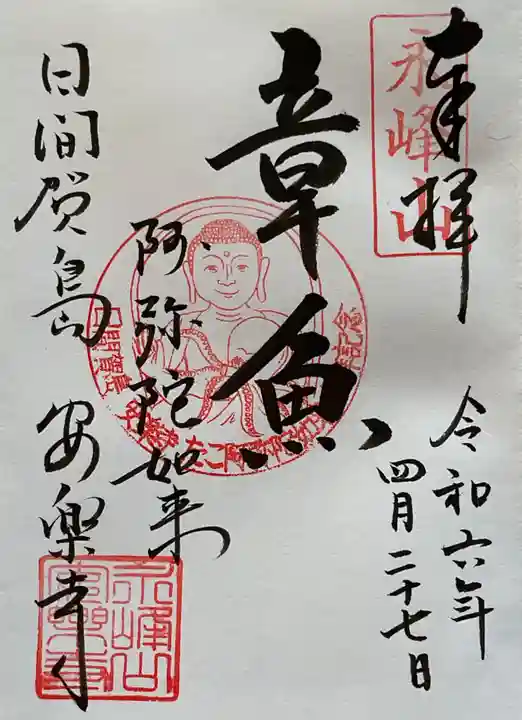 奉拝
永峰山
令和六年
四月二十七日
章魚
阿弥陀如来
日間賀島 安楽寺
永峰山
安樂寺